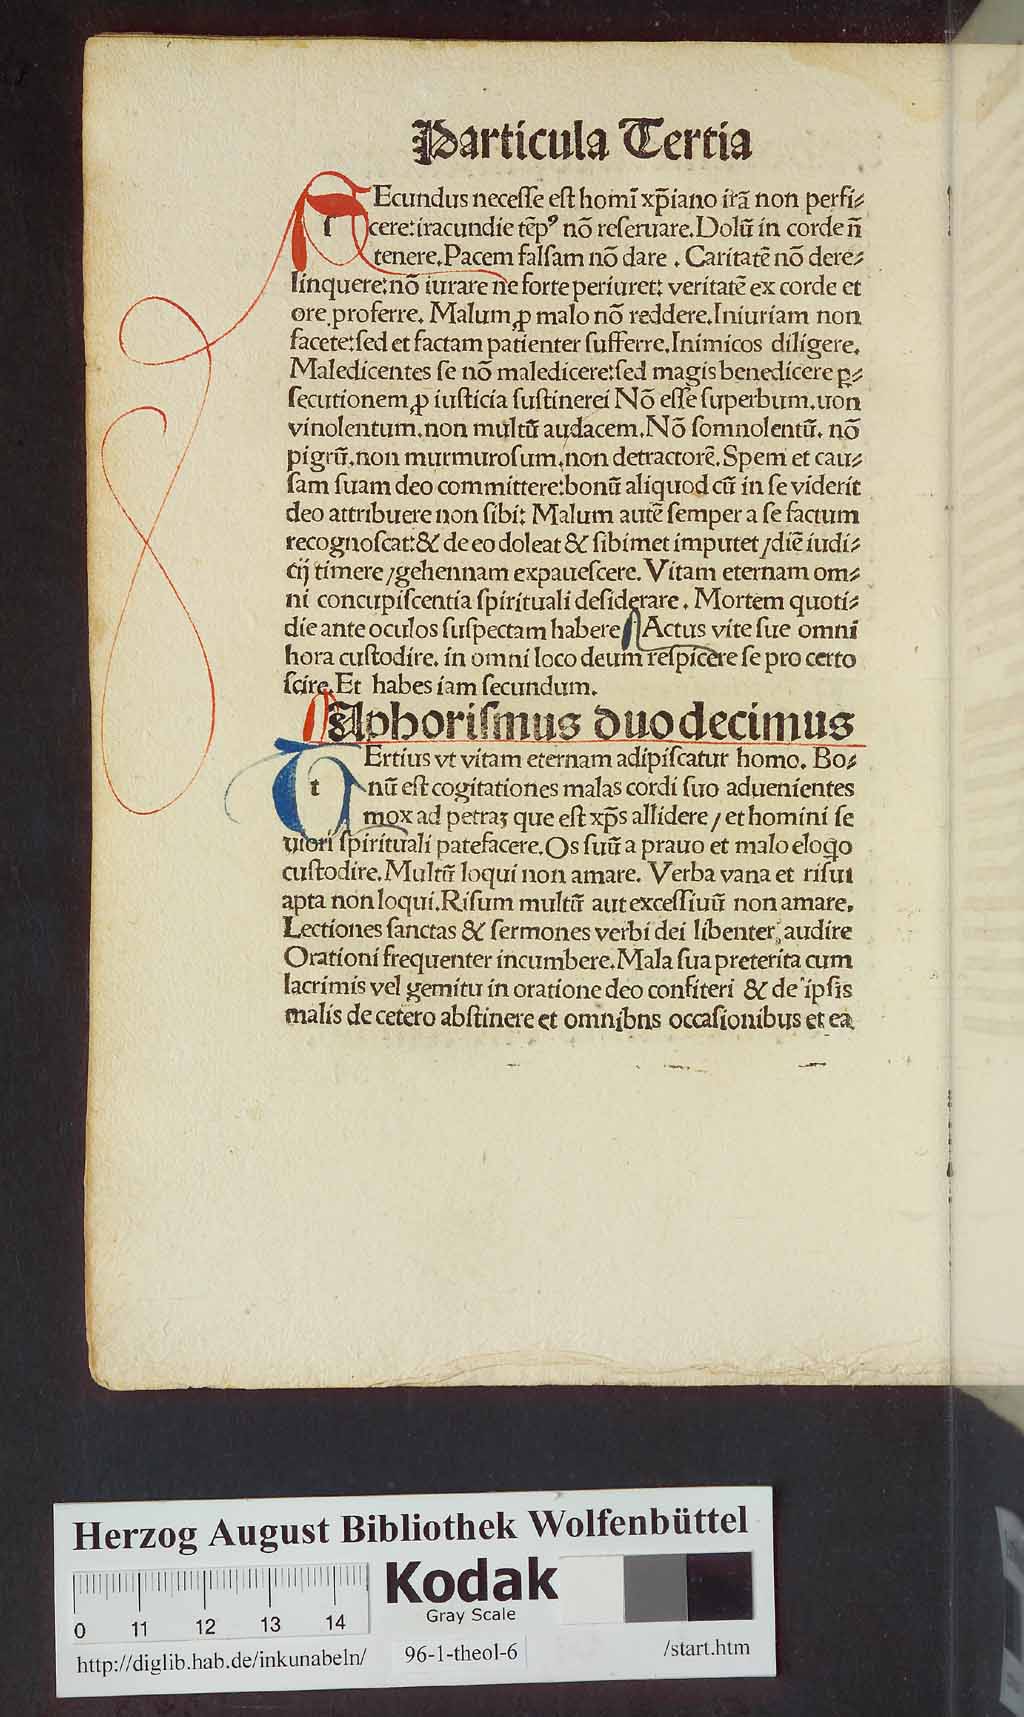 Particula Tertia
Ecundus neceſſe eſt homĩ xp̄iano irã non perfi⸗
r cere: iracundie tẽpꝰ nõ reſeruare. Dolũ in corde ñ
tenere. Pacem falſam nõ dare . Caritatẽ nõ dere⸗
linquere: nõ iurare ne forte periuret: veritatẽ ex corde et
ore proferre. Malum ꝓ malo nõ reddere. Iniuriam non
facete: ſed et factam patienter ſufferre. Inimicos diligere.
Maledicentes ſe nõ maledicere: ſed magis benedicere ꝑ⸗
ſecutionem ꝓ iuſticia ſuſtinerei Nõ eſſe ſuperbum. uon
vinolentum. non multũ audacem. Nõ ſomnolentũ. nõ
pigrũ. non murmuroſum. non detractorẽ. Spem et cau⸗
ſam ſuam deo committere: bonũ aliquod cũ in ſe viderit
deo attribuere non ſibi: Malum autẽ ſemper a ſe factum
recognoſcat: & de eo doleat & ſibimet imputet / diẽ iudi⸗
cij timere / gehennam expaueſcere. Vitam eternam om⸗
ni concupiſcentia ſpirituali deſiderare . Mortem quoti⸗
die ante oculos ſuſpectam habere Actus vite ſue omni
hora cuſtodire. in omni loco deum reſpicere ſe pro certo
ſcire. Et habes iam ſecundum.
Aphoriſmus duodecimus
Ertius vt vitam eternam adipiſcatur homo. Bo⸗
t nũ eſt cogitationes malas cordi ſuo aduenientes
mox ad petraꝫ que eſt xp̄s allidere / et homini ſe
uiori ſpirituali patefacere. Os ſuũ a prauo et malo eloq̃o
cuſtodire. Multũ loqui non amare. Verba vana et riſui
apta non loqui. Riſum multũ aut exceſſiuũ non amare.
Lectiones ſanctas & ſermones verbi dei libenter audire
Orationi frequenter incumbere. Mala ſua preterita cum
lacrimis vel gemitu in oratione deo confiteri & de ipſis
malis de cetero abſtinere et omnibns occaſionibus et ea
Herzog August Bibliothek Wolfenbüttel
Kodak
Gray Scale
0 11 12 13 14
http://diglib.hab.de/inkunabeln/ 96-1-theol-6 /start.htm